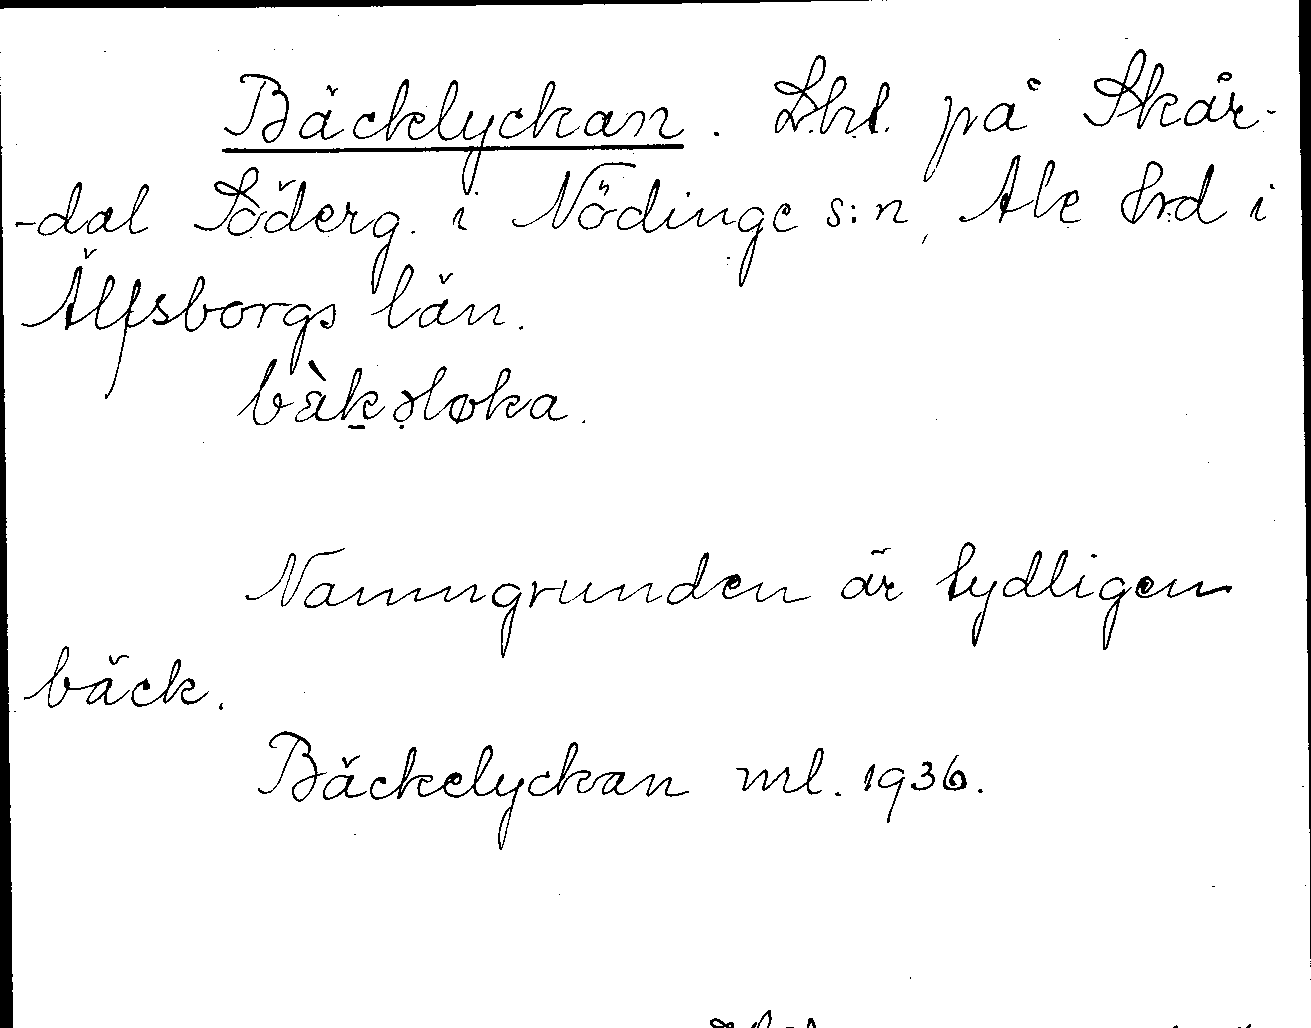 Bäcklyckan. Lhl. på Skår-
-dal Söderg. i Nödinge s:n, Ale hrd i
Älfsborgs län.
bàkəløka.
Namngrunden är tydligen
bäck.
Bäckelyckan ml. 1936.